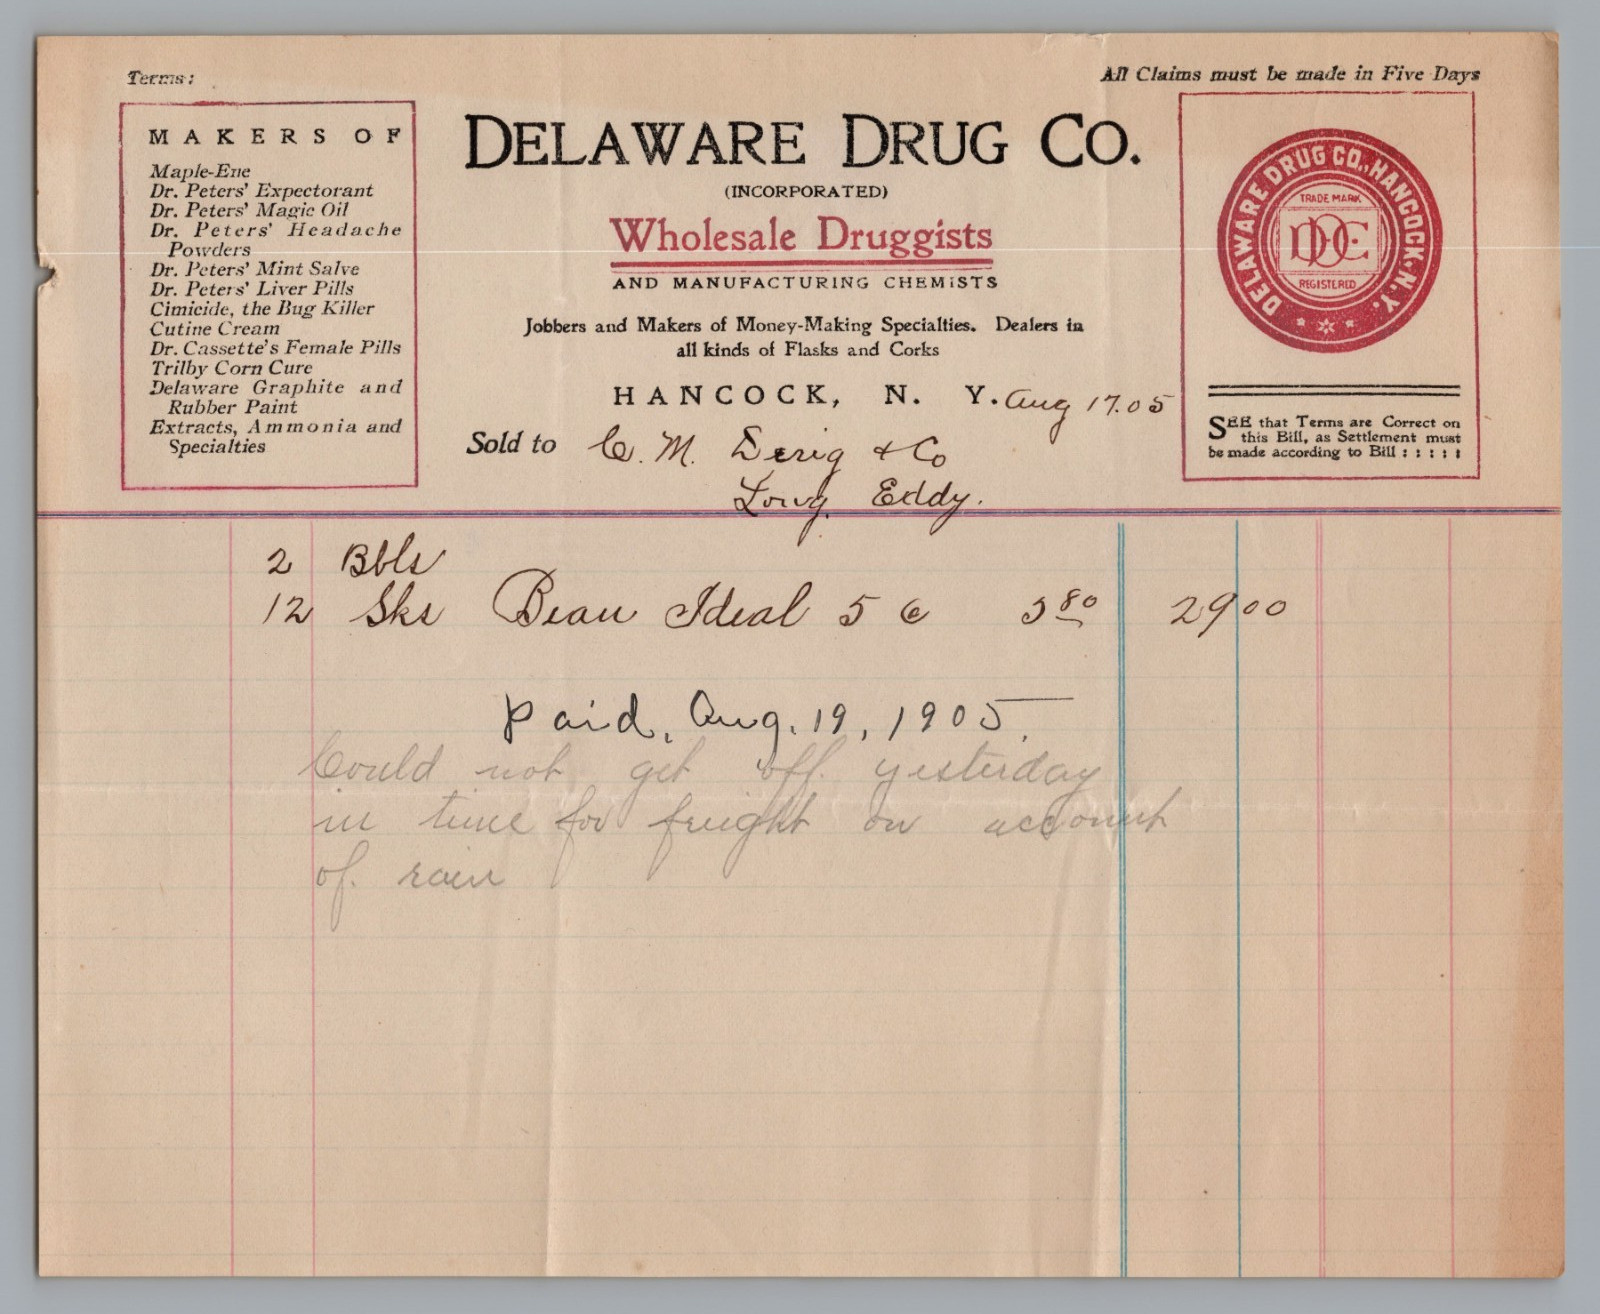 Terms:
All Claims must be made in Five Days
MAKERS OF
Maple-Ene
Dr. Peters' Expectorant
Dr. Peters' Magic Oil
Dr. Peters' Headache
Powders
Dr. Peters' Mint Salve
Dr. Peters' Liver Pills
Cimicide, the Bug Killer
Cutine Cream
Dr. Cassette's Female Pills
Trilby Corn Cure
Delaware Graphite and
Rubber Paint
Extracts, Ammonia and
Specialties
DELAWARE DRUG CO.
(INCORPORATED)
Wholesale Druggists
AND MANUFACTURING CHEMISTS
Jobbers and Makers of Money-Making Specialties. Dealers in
all kinds of Flasks and Corks
HANCOCK, N. Y. Aug 17.05
Sold to C. M. & Co
Long Eddy.
DELAWARE DRUG CO., HANCOCK, N.Y.
TRADE MARK
DDC
REGISTERED
SEE that Terms are Correct on
this Bill, as Settlement must
be made according to Bill : : : : :
2 Bbls
12 Sks Beau Ideal 5 5 80 29 00
Paid, Aug. 19, 1905.
Could not get off yesterday
in time for freight on account
of. rain